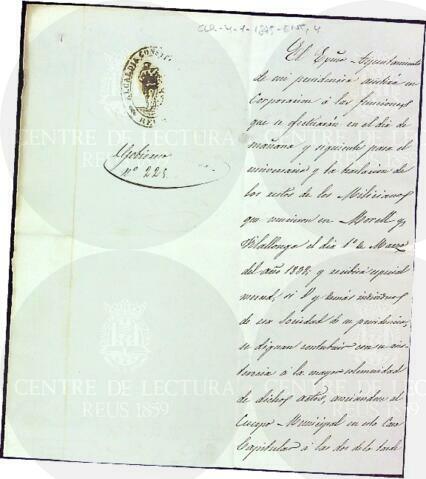 CLR-4-1-1875-E155, 4
ALCALDIA CONSTIT
Gobierno
nº 225.
El Excmo. Ayuntamiento
de mi presidencia asistirá en
Corporacion á las funciones
que se efectuarán en el dia de
mañana y siguientes para el
aniversario y la traslacion de
los restos de los Milicianos
que murieron en Morell y
Vilallonga el dia 1º de Marzo
del año 1838, y
si V y demás individuos
de esa Sociedad de su presidencia,
se dignan contribuir con su asis-
tencia á la mayor solemnidad
de dichos actos, asociandose al
Cuerpo Municipal en esta Casa
Capitular á las dos de la tarde
CENTRE DE LECTURA
REUS 1859
CENTRE DE LECTURA
REUS 1859